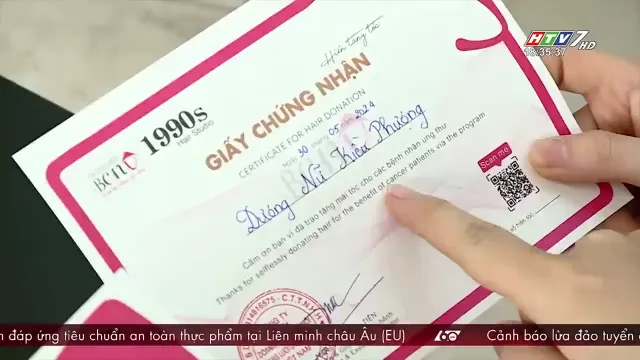 HTV7 HD
18:35:37
Hiến tặng tóc
BCNV
1990s
Hair Studio
GIẤY CHỨNG NHẬN
CERTIFICATE FOR HAIR DONATION
Ngày 30 tháng 05 2024
Dương Nữ Kiều Phượng
Cảm ơn bạn vì đã trao tặng mái tóc cho các bệnh nhân ung thư
Thanks for selflessly donating hair for the benefit of cancer patients via the program
Scan me
814816575 - C.T.T.N.H.H
đáp ứng tiêu chuẩn an toàn thực phẩm tại Liên minh châu Âu (EU)
60
Cảnh báo lừa đảo tuyển